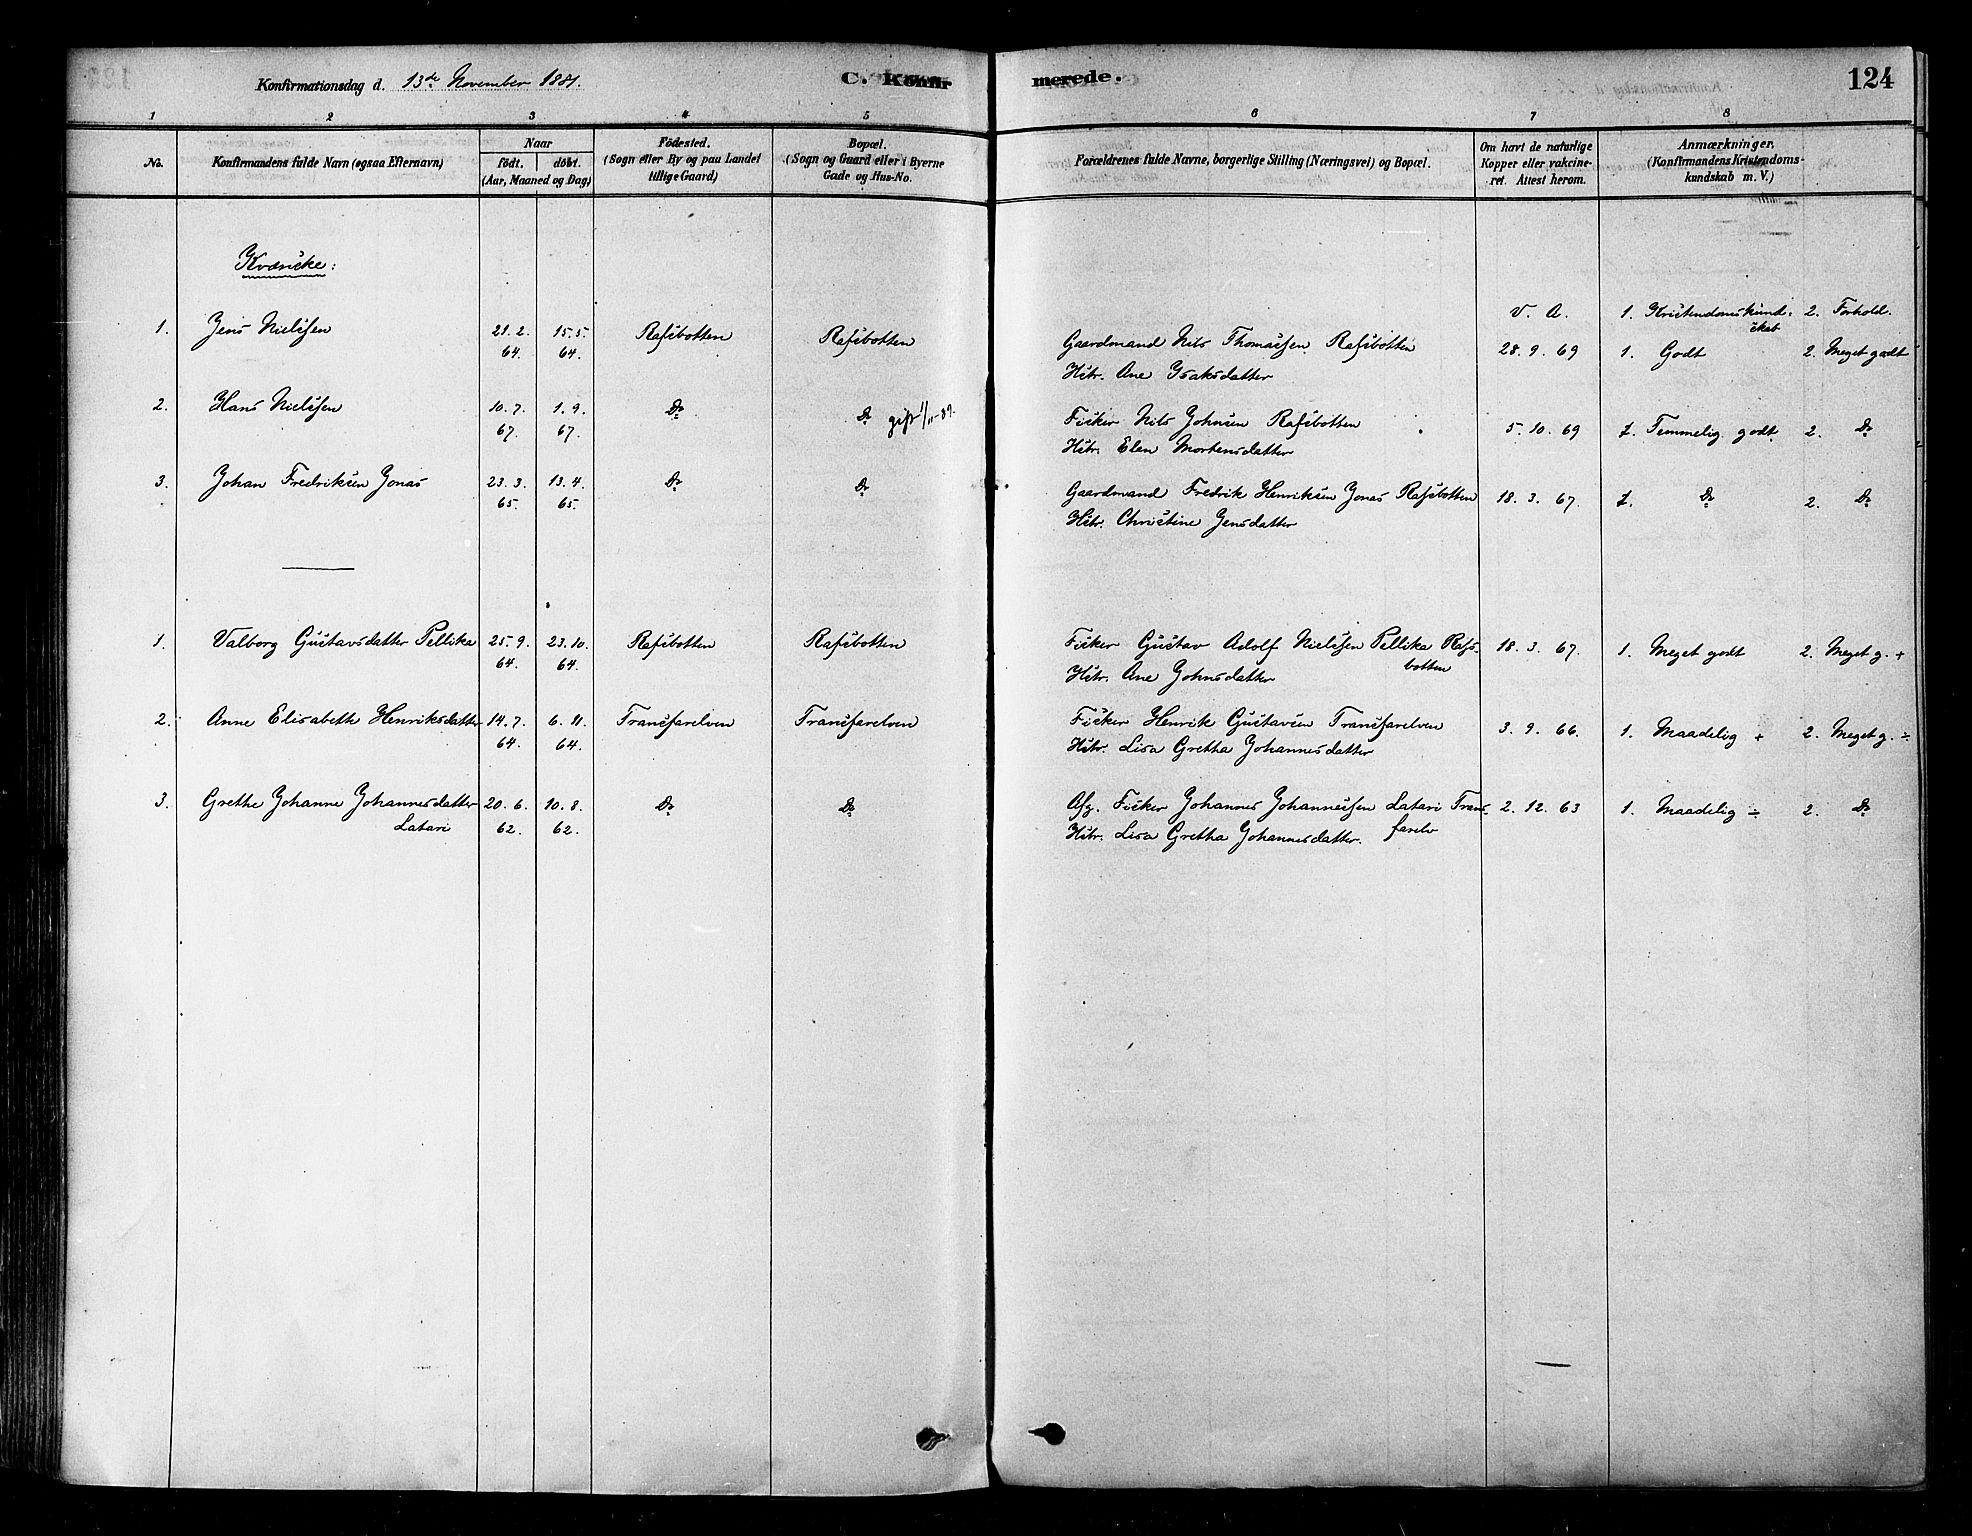 Konfirmationsdag d. 13de November 1881.
C. Konfir
merede.
124
1 2 3 4 5 6 7 8
No.
Konfirmandens fulde Navn (ogsaa Efternavn)
Naar
födt. döbt.
(Aar, Maaned og Dag)
Födested.
(Sogn eller By og paa Landet
tillige Gaard)
Bopæl.
(Sogn og Gaard eller i Byerne
Gade og Hus-No.
Forældrenes fulde Navne, borgerlige Stilling (Næringsvei) og Bopæl.
Om havt de naturlige
Kopper eller vakcine-
ret. Attest herom.
Anmærkninger.
(Konfirmandens Kristendoms-
kundskab m. V.)
Kvænske:
V. A. 1. Kristendomskund- 2. Forhold.
skab
1. Jens Nielssen 21. 2. 15. 5. Rafsbotten Rafsbotten Gaardmand Nils Thomassen Rafsbotten 28. 9. 69 1. Godt 2. Meget godt
64. 64. Hstr. Ane Isaksdatter
2. Hans Nielssen 10. 7. 1. 9. Do Do gift 1/11-87. Fisker Nils Johnsen Rafsbotten 5. 10. 69 1. Temmelig godt 2. Do
67. 67. Hstr. Elen Mortensdatter
3. Johan Fredriksen Jonas 23. 3. 13. 4. Do Do Gaardmand Fredrik Henriksen Jonas Rafsbotten 18. 3. 67. 1. Do 2. Do
65. 65. Hstr. Christine Jensdatter
1. Valborg Gustavsdatter Pellika 25. 9. 23. 10. Rafsbotten Rafsbotten Fisker Gustav Adolf Nielssen Pellika Rafs- 18. 3. 67. 1. Meget godt 2. Meget g. +
botten
64. 64. Hstr. Ane Johnsdatter
2. Anne Elisabeth Henriksdatter 14. 7. 6. 11. Transfarelven Transfarelven Fisker Henrik Gustavsen Transfarelven 3. 9. 66. 1. Maadelig + 2. Meget g. ÷
64. 64. Hstr. Lisa Gretha Johannesdatter
3. Grethe Johanne Johannesdatter 20. 6. 10. 8. Do Do Afg. Fisker Johannes Johannessen Latari Trans- 2. 12. 63 1. Maadelig ÷ 2. Do
Latari 62. 62. Hstr. Lisa Gretha Johannesdatter. farelv